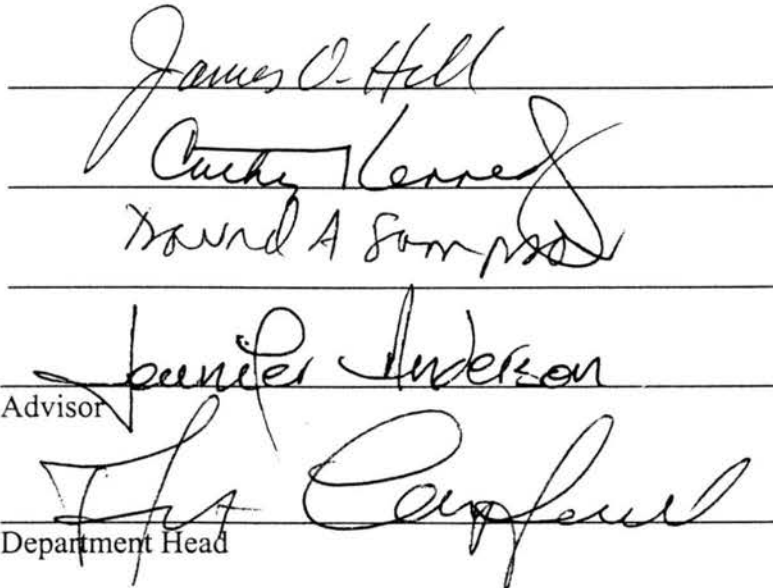 James O. Hill
Cathy Kennedy
David A Sampson
Jennifer Anderson
Advisor
Department Head